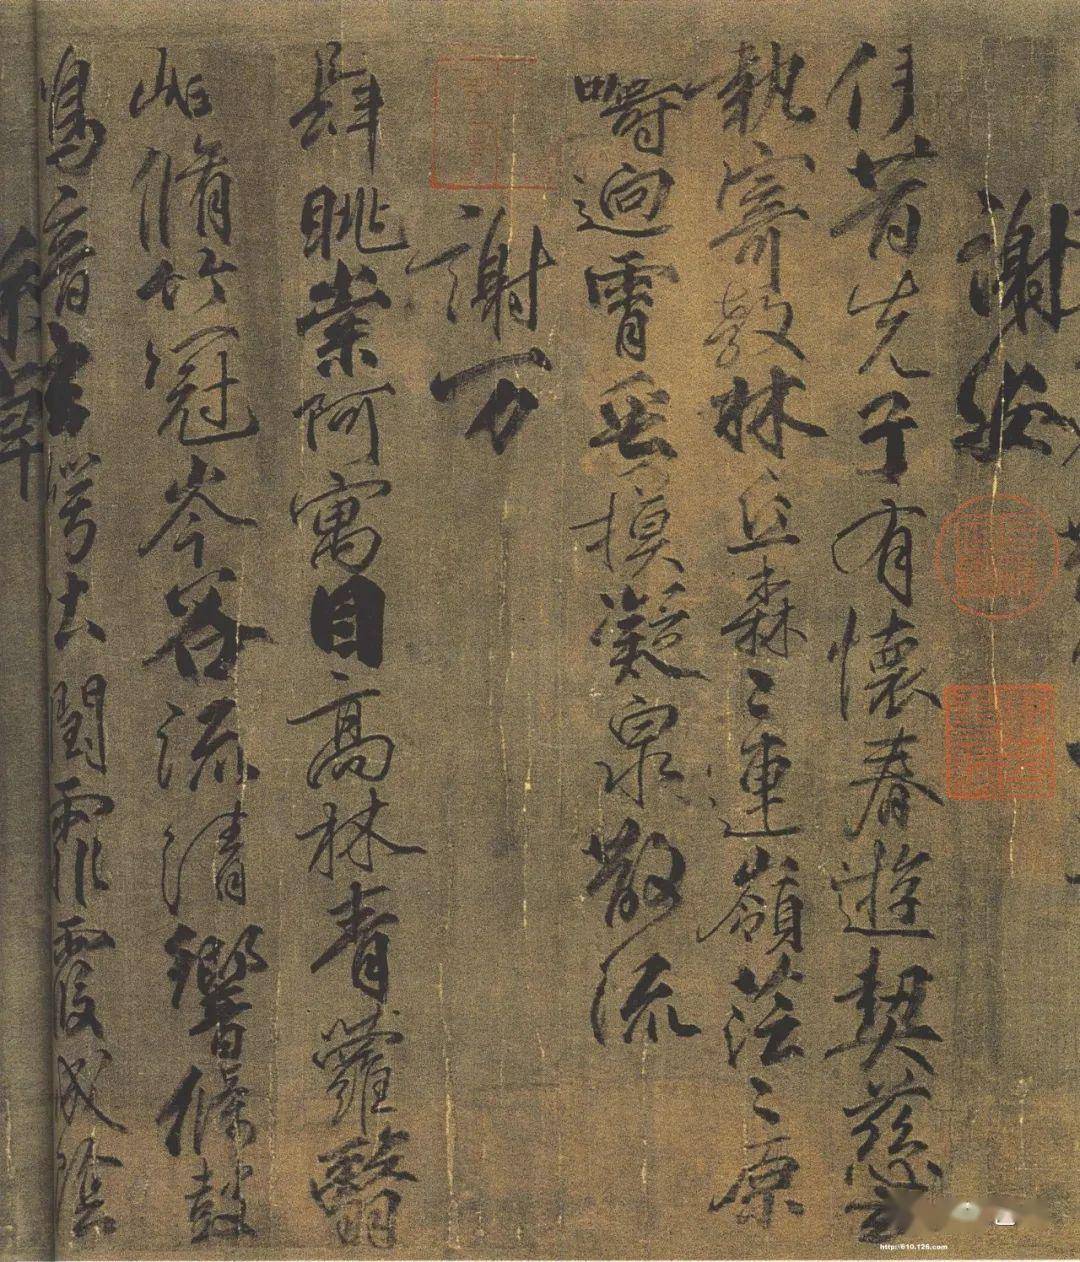 謝安
伊昔先子有懷春遊契慈言
執寄敖林丘森〻連嶺茫〻原
疇迥霄垂摸凝泉散流
謝万
肆眺崇阿寓目高林青蘿翳
岫脩竹冠岑谷流清響條鼓
鳴音玄崿吐閏霏霞成陰
http://610.126.com